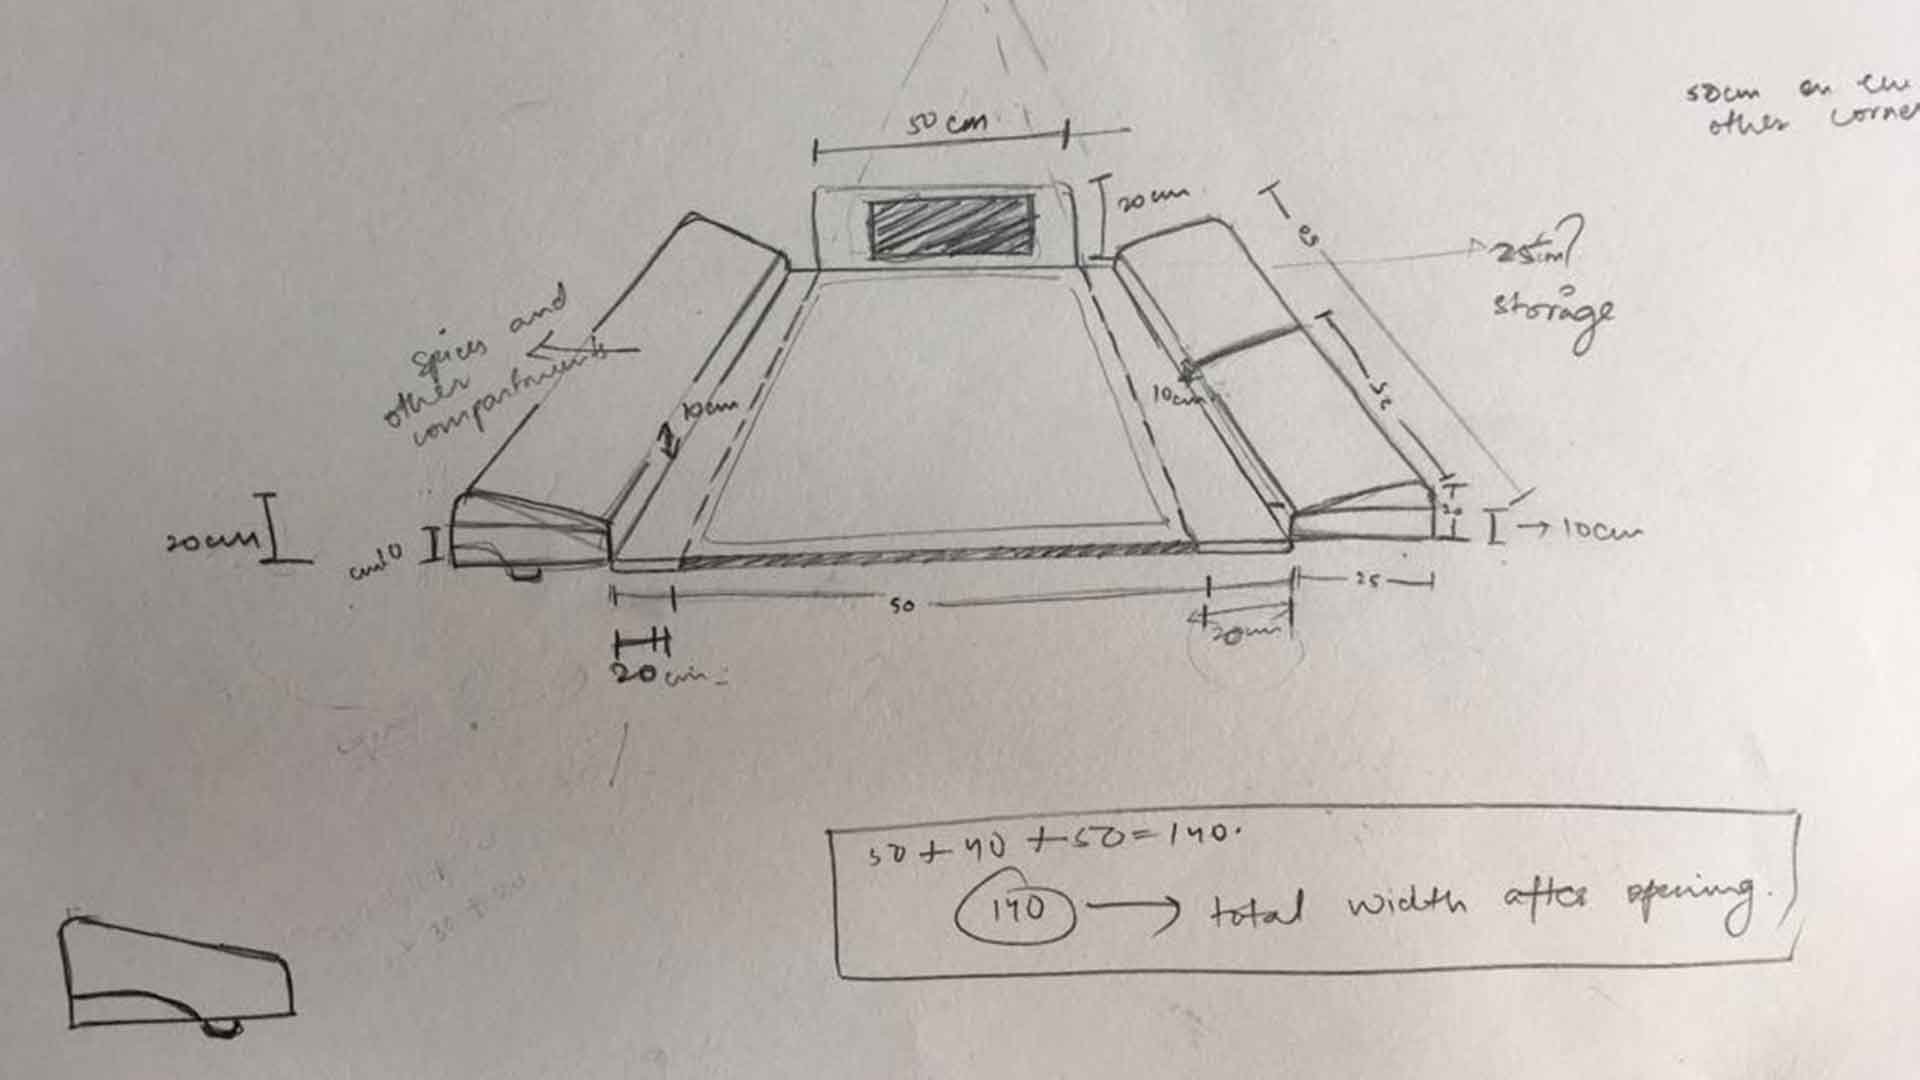 50 cm
50cm on the
other corner
20cm
25cm?
storage
Spices and
other
compartments
10cm
10cm
20cm
10
cm
20
→ 10cm
50
25
20cm
20cm
50 + 40 + 50 = 140.
140 → total width after opening.